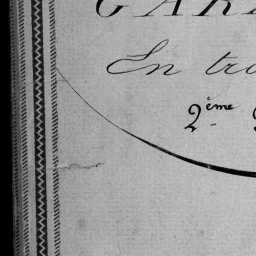 GAR
En tro
2ème